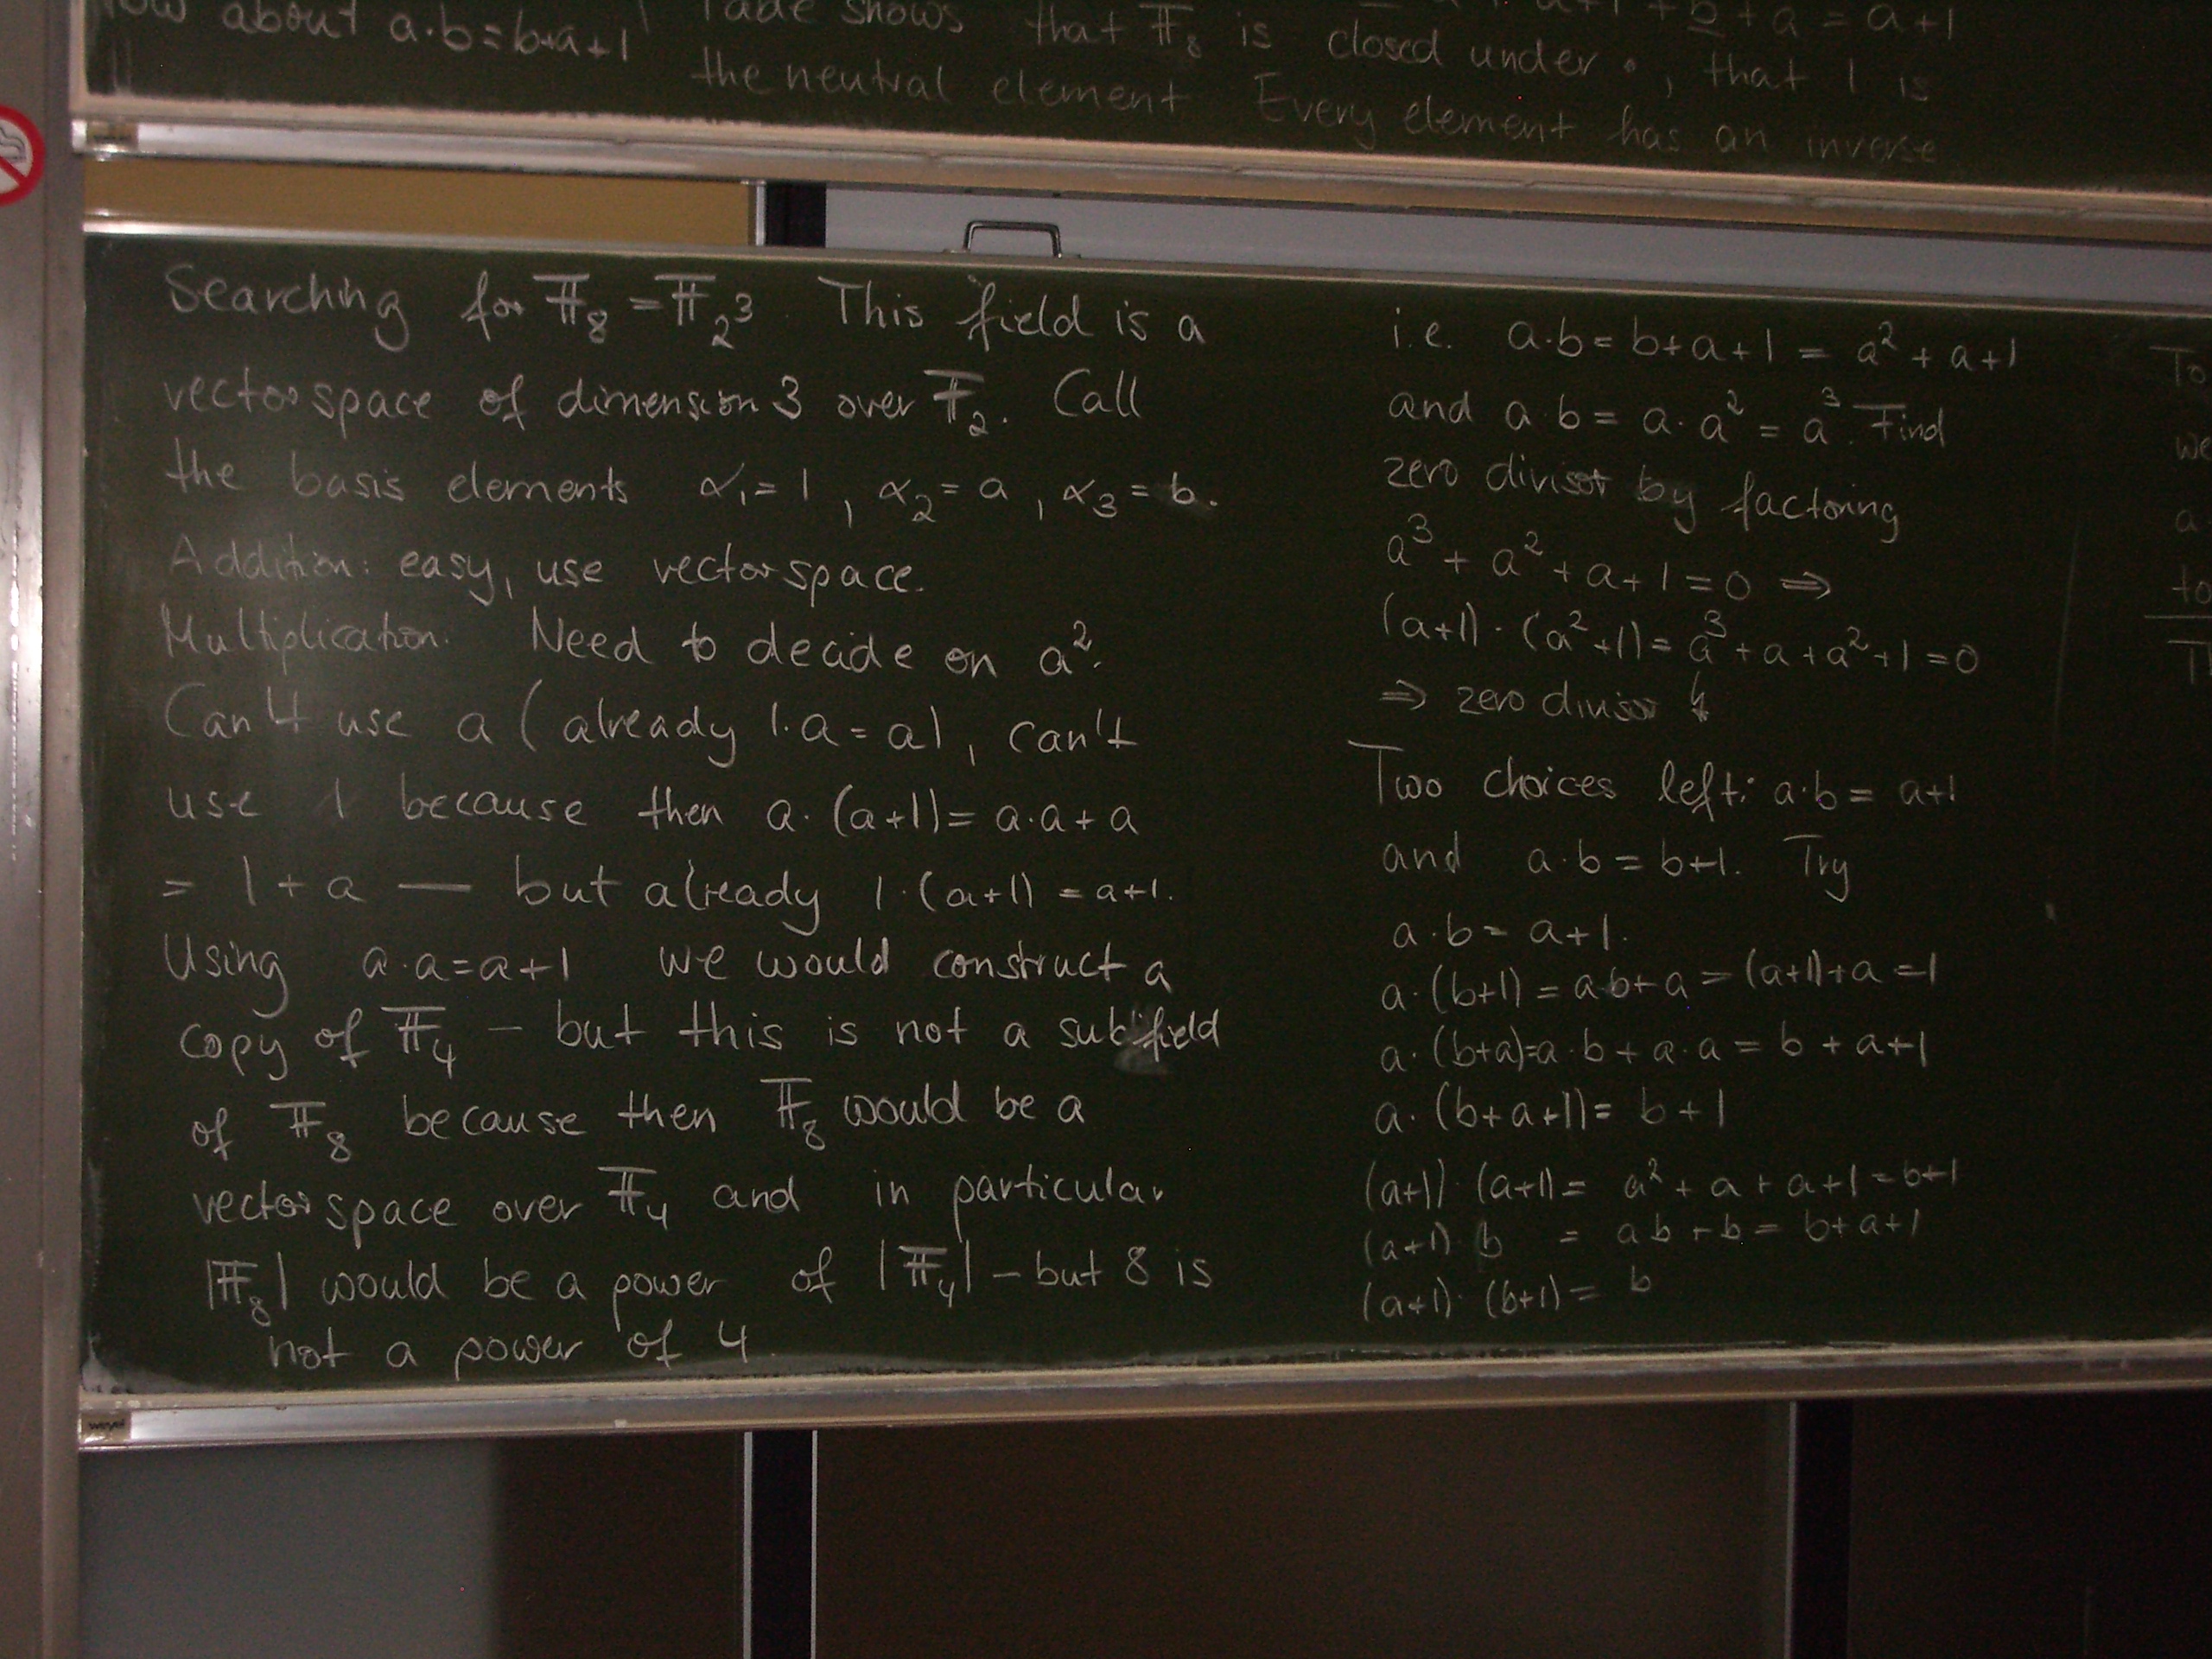 about a·b=b+a+1
Table shows that 𝔽₈ is closed under ·, that 1 is
the neutral element Every element has an inverse
a+1+b+a = a+1
Searching for 𝔽₈ = 𝔽₂³. This field is a
vectorspace of dimension 3 over 𝔽₂. Call
the basis elements α₁=1, α₂=a, α₃=b.
Addition: easy, use vectorspace.
Multiplication: Need to decide on a².
Can't use a (already 1·a=a), can't
use 1 because then a·(a+1)=a·a+a
= 1+a — but already 1·(a+1) = a+1.
Using a·a=a+1 we would construct a
copy of 𝔽₄ – but this is not a subfield
of 𝔽₈ because then 𝔽₈ would be a
vectorspace over 𝔽₄ and in particular
|𝔽₈| would be a power of |𝔽₄| – but 8 is
not a power of 4
i.e. a·b=b+a+1 = a²+a+1
and a·b = a·a² = a³. Find
zero divisor by factoring
a³+a²+a+1=0 ⇒
(a+1)·(a²+1)=a³+a+a²+1=0
⇒ zero divisor ↯
Two choices left: a·b= a+1
and a·b=b+1. Try
a·b= a+1.
a·(b+1) = ab+a = (a+1)+a =1
a·(b+a)=a·b+a·a = b+a+1
a·(b+a+1)= b+1
(a+1)·(a+1)= a²+a+a+1=b+1
(a+1)·b = ab+b = b+a+1
(a+1)·(b+1)= b
To
we
a
to
weyel